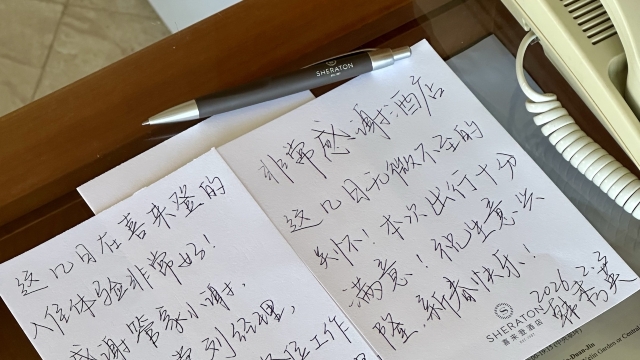 这几日在喜来登的
入住体验非常好!
感谢管家小谢,
刘经理,
工作
非常感谢酒店
这几日无微不至的
关怀!本次出行十分
满意!祝生意兴
隆,新春快乐!
2026.2.3
SHERATON
喜来登酒店
SHERATON